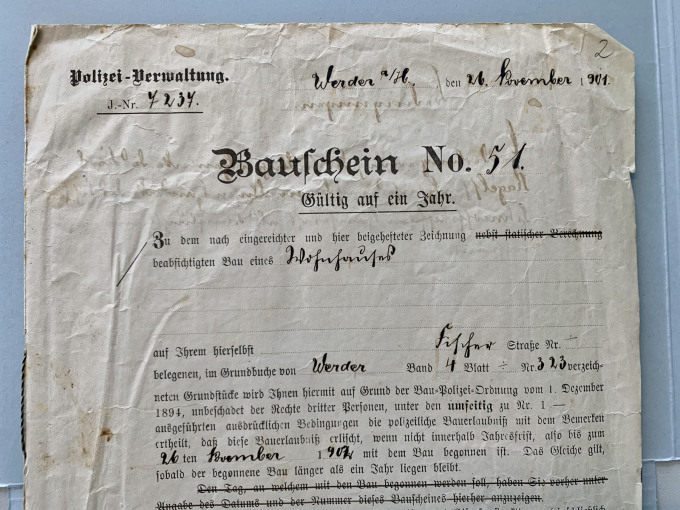 2
Polizei-Verwaltung.
Werder a/H. , den 26. November 1901.
J.-Nr. 7237.
Bauschein No. 51.
Gültig auf ein Jahr.
Zu dem nach eingereichter und hier beigehefteter Zeichnung nebst statischer Berechnung
beabsichtigten Bau eines Wohnhauses
auf Ihrem hierselbst Fischer Straße Nr. ÷
belegenen, im Grundbuche von Werder Band 4 Blatt ÷ Nr. 323 verzeich-
neten Grundstücke wird Ihnen hiermit auf Grund der Bau-Polizei-Ordnung vom 1. Dezember
1894, unbeschadet der Rechte dritter Personen, unter den umseitig zu Nr. 1 —
ausgeführten ausdrücklichen Bedingungen die polizeiliche Bauerlaubniß mit dem Bemerken
ertheilt, daß diese Bauerlaubniß erlischt, wenn nicht innerhalb Jahresfrist, also bis zum
26 ten November 1902 mit dem Bau begonnen ist. Das Gleiche gilt,
sobald der begonnene Bau länger als ein Jahr liegen bleibt.
Den Tag, an welchem mit dem Bau begonnen werden soll, haben Sie vorher unter
Angabe des Datums und der Nummer dieses Bauscheines hierher anzuzeigen.